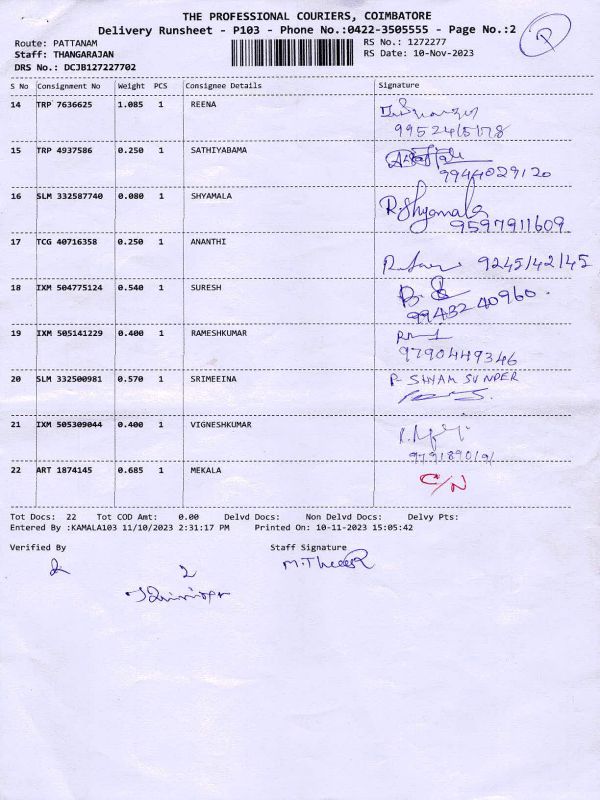 THE PROFESSIONAL COURIERS, COIMBATORE
Delivery Runsheet - P103 - Phone No.:0422-3505555 - Page No.:2
P
Route: PATTANAM RS No.: 1272277
Staff: THANGARAJAN RS Date: 10-Nov-2023
DRS No.: DCJB127227702
S No Consignment No Weight PCS Consignee Details Signature
14 TRP 7636625 1.085 1 REENA
15 TRP 4937586 0.250 1 SATHIYABAMA
9944029120
16 SLM 332587740 0.080 1 SHYAMALA R.Shyamala
9597911609
17 TCG 40716358 0.250 1 ANANTHI 9245142145
18 IXM 504775124 0.540 1 SURESH
9943240960.
19 IXM 505141229 0.400 1 RAMESHKUMAR
9790449346
20 SLM 332500981 0.570 1 SRIMEEINA P SHYAM SUNDER
21 IXM 505309044 0.400 1 VIGNESHKUMAR
22 ART 1874145 0.685 1 MEKALA C/N
Tot Docs: 22 Tot COD Amt: 0.00 Delvd Docs: Non Delvd Docs: Delvy Pts:
Entered By :KAMALA103 11/10/2023 2:31:17 PM Printed On: 10-11-2023 15:05:42
Verified By Staff Signature